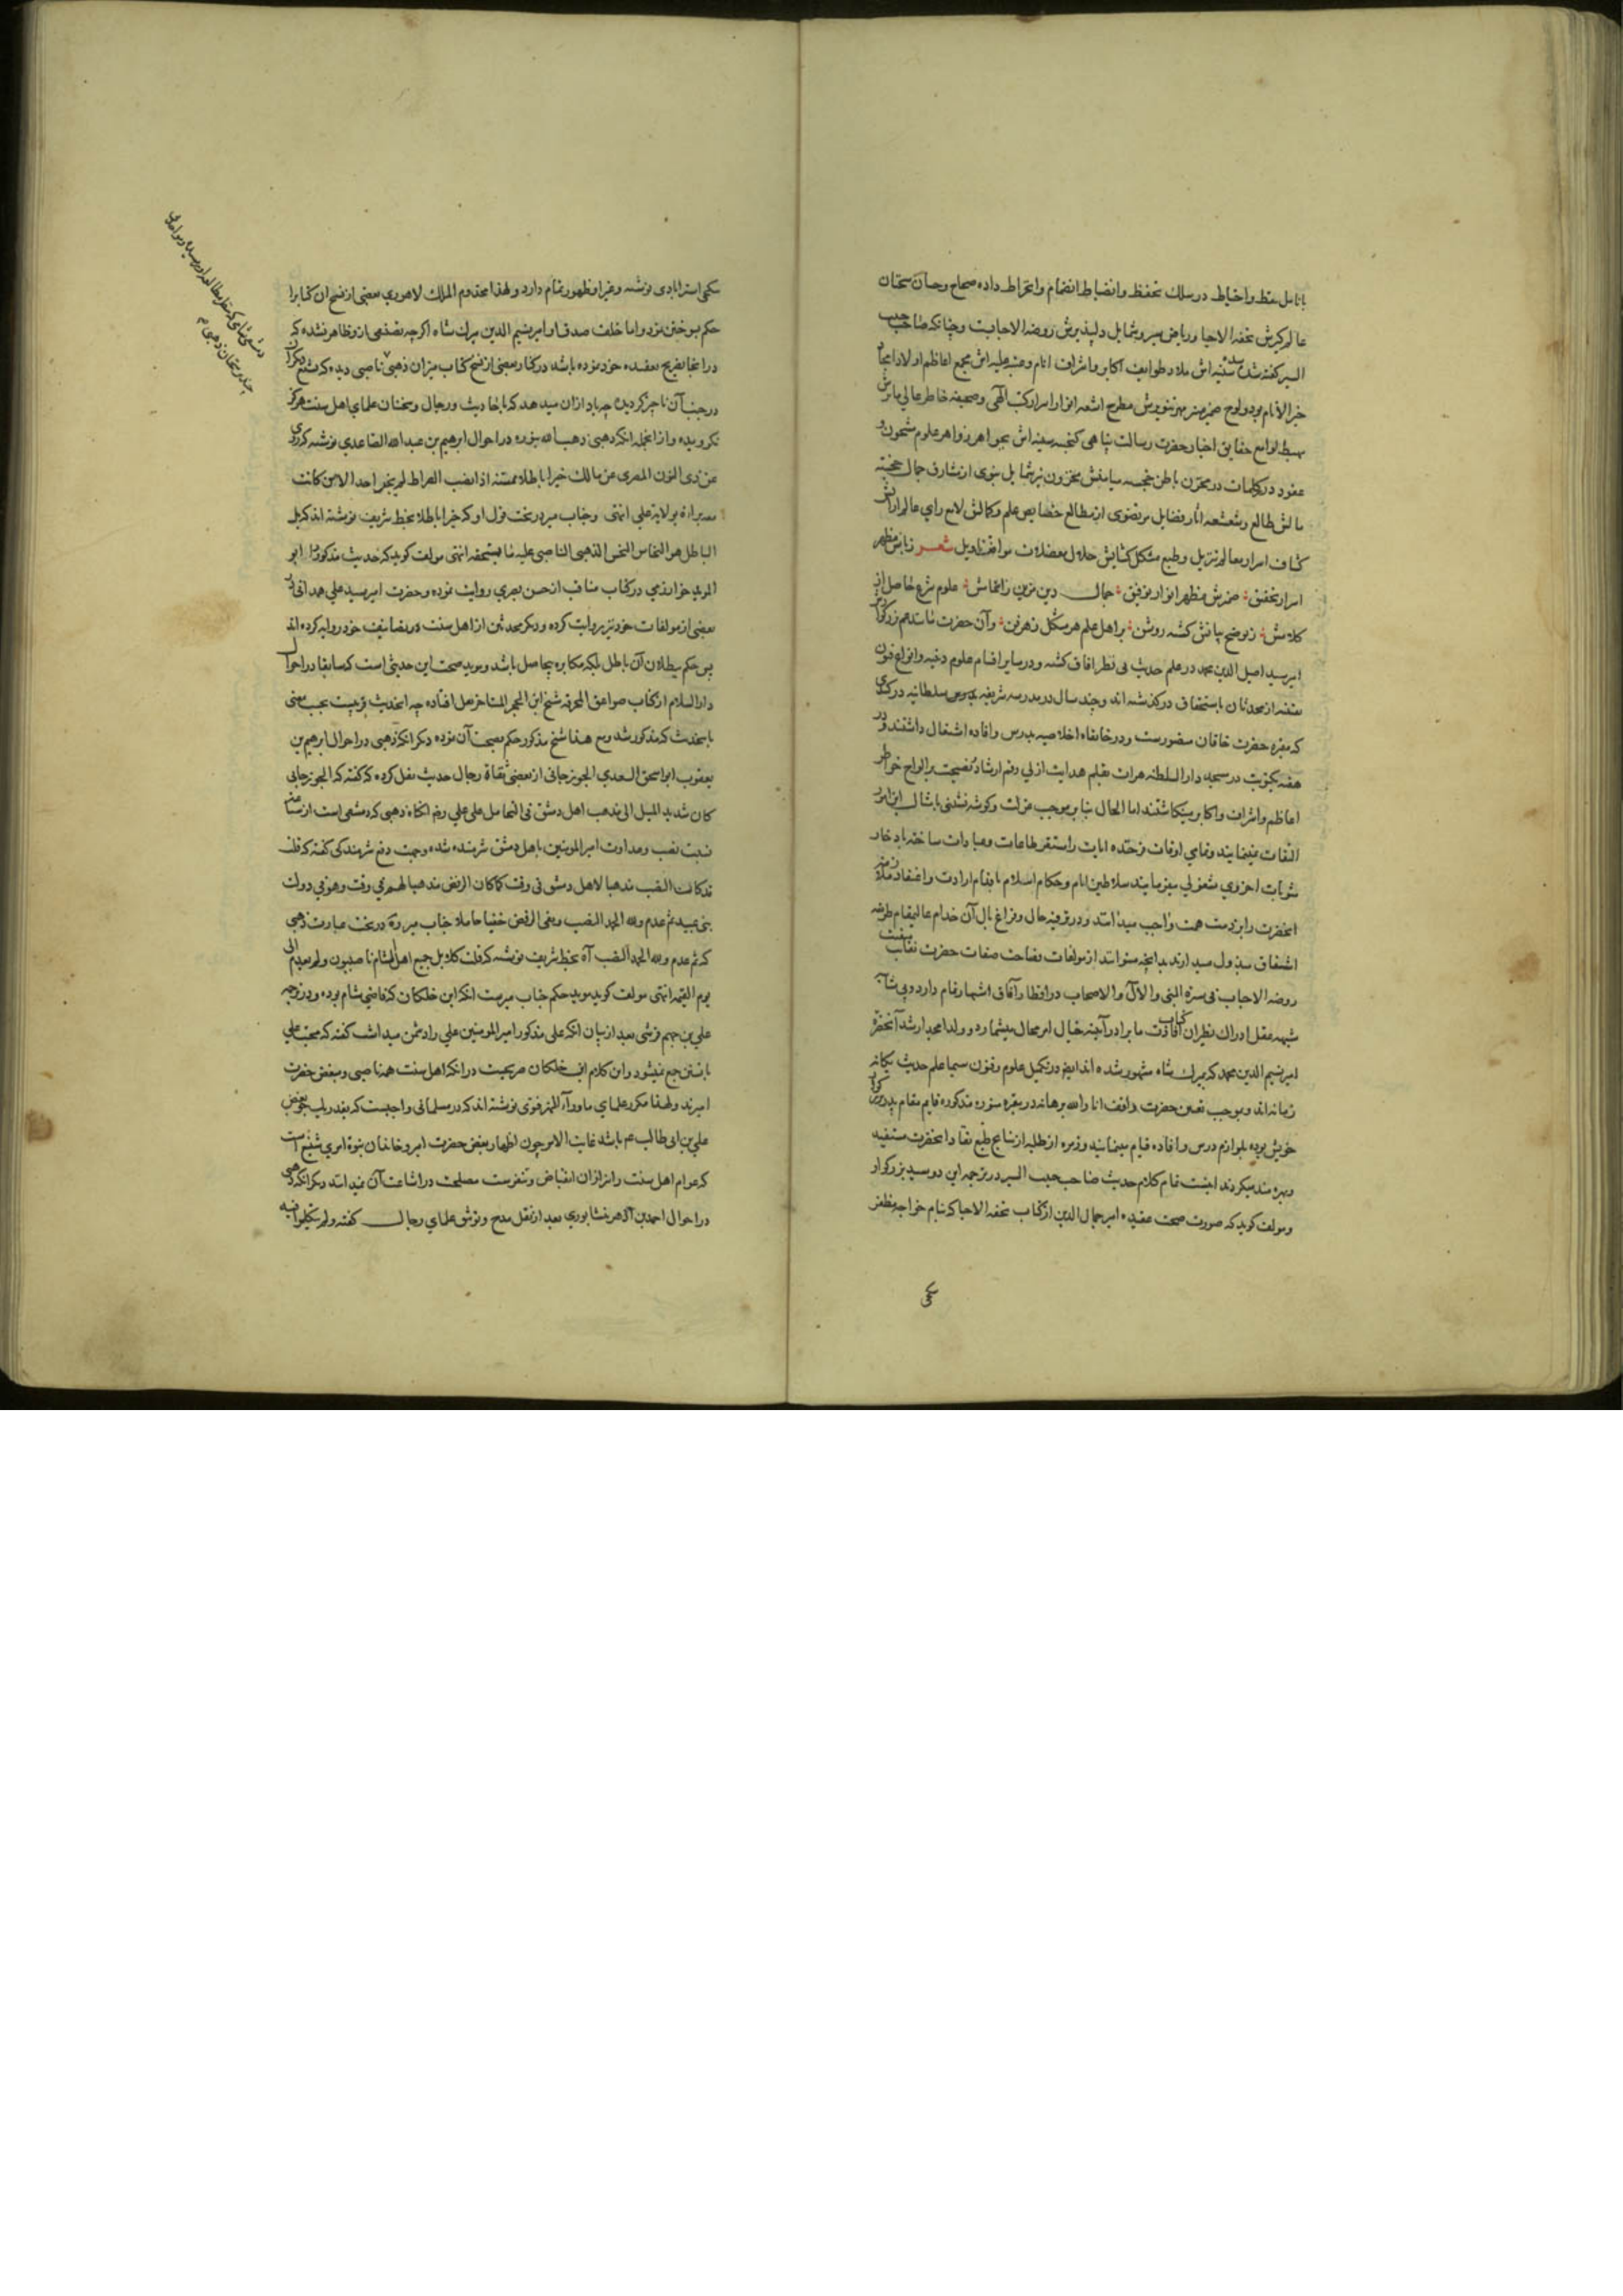 بانامل تیقظ و احتیاط در سلک تحفظ و انضباط انضمام و انخراط داده صحاح و حسان سخنان
عالم گیرش تحفة الاحبا و ریاض سیر و شمایل دلپذیرش روضة الاحبابست و چنانکه صاحب حبیب
السیر گفته شده سنیه‌اش ملاذ طوایف اکابر و اشراف انام و عتبه علیه‌اش مجمع اعاظم اولاد امجاد
خیر الانام بود و لوح ضمیر مهر تنویرش مطرح اشعه انوار اسرار کتب الهی و صحیفه خاطر عالی ماثرش
مهبط لوامع حقایق اخبار حضرت رسالت پناهی گنجینه سینه‌اش بجواهر زواهر علوم مشحون و
عقود درر کلمات در مخزن باطن خجسته میامنش مخزون نیر شمایل نبوی از مشارق جمال خجسته
مآلش طالع و شعشعه آثار فضایل مرتضوی از مطالع خصایص علم و کمالش لامع رای عالم آرایش
کشاف اسرار معالم تنزیل و طبع مشکل گشایش حلال معضلات مواقف تاویل شعر زبانش مظهر
اسرار تحقیق ضمیرش مظهر انوار توفیق جمال دین مزین زاهتمامش علوم شرع حاصل از
کلامش ز توضیح بیانش گشته روشن بر اهل علم هر مشکل ز هر فن و آن حضرت مانند عم بزرگوار خود
امیر سید اصیل الدین محمد در علم حدیث بی نظیر آفاق گشته و در سایر اقسام علوم دینیه و انواع فنون
یقینیه از محدثان باستحقاق درگذشته‌اند و چند سال در مدرسه شریفه سلطانیه در گنبدی
که مقبره حضرت خاقان منصورست و در خانقاه اخلاصیه بدرس و افاده اشتغال داشتند و در
هفته یکنوبت در مسجد دار السلطنه هرات بقلم هدایت ازلی رقم ارشاد و نصیحت بر الواح خواطر
اعاظم و اشراف و اکابر مینگاشتند اما الحال بنا بر موجب عزلت و گوشه نشینی بامثال این امور
التفات نمینمایند و تمامی اوقات فرخنده آیات را مستغرق طاعات و عبادات ساخته باد خار
مثوبات اخروی مشغولی میفرمایند سلاطین انام و حکام اسلام بانعام ارادت و اعتقاد ملازمت
آنحضرت را بر ذمت همت واجب میدانند و در ترفیه حال و فراغ بال آن خدام عالیمقام طریقه
اشفاق مبذول میدارند بدانچه میتوانند از مولفات فصاحت صفات حضرت نقابت منقبت
روضة الاحباب فی سیرة النبی و الآل و الاصحاب در اقطار آفاق اشتهار تمام دارد و بی شایبه
شبهه عقل ادراک نظیر آن کتاب افادت مآب را در آینه خیال امر محال میشمارد و ولد امجد ارشد آنحضرت
امیر نسیم الدین محمد که بمیرک شاه مشهور شده‌اند ایضا در تکمیل علوم و فنون سیما علم حدیث یگانه
زمانه‌اند و بموجب تعیین حضرت واقف انار الله برهانه در مقبره منوره مذکوره قایم مقام پدر بزرگوار
خویش بوده بلوازم درس و افاده قیام مینمایند و زمره از طلبه از نتایج طبع نقاد آنحضرت مستفید
و بهره‌مند میگردند اینست تمام کلام حدیث صاحب حبیب السیر در ترجمه این دو سید بزرگوار
و مولف گوید که صورت صحت عقیده امیر جمال الدین از کتاب تحفة الاحبا که بنام خواجه مظفر
تبکچی
تبکچی استرابادی نوشته و غیر او ظهور تمام دارد و لهذا مخدوم الملک لاهوری بعضی از نسخ آن کتاب را
حکم بسوختن نمود و اما خلف صدق او امیر نسیم الدین میرک شاه اگرچه تصنیفی از و ظاهر نشده که
در آنجا تصریح بعقیده خود نموده باشد در کنار بعضی از نسخ کتاب میزان ذهبی ناصبی دیده که تشیع دیگران
در جنب آن ناچیز گردیده چه یاد از آن میدهد که باحادیث و رجال و سخنان علمای اهل سنت هرگز
نگرویده و از انجمله آنکه ذهبی در احوال ابرهیم بن عبد الله الصاعدی نوشته که روی
عن ذی النون المصری عن مالک خبرا باطلا متنه اذا نصب الصراط لم یجز احد الا من کانت
معه براة بولایة علی انتهی و جناب میر در تحت قول او که خبرا باطلا بخط شریف نوشته‌اند که بل
الباطل هو النحاس النحس الذهبی الناصبی علیه ما یستحقه انتهی مولف گوید که حدیث مذکور را ابو
المؤید خوارزمی در کتاب مناقب از حسن بصری روایت نموده و حضرت امیر سید علی همدانی در
بعضی از مولفات خود نیز روایت کرده و دیگر محدثین از اهل سنت در تصانیف خود روایه کرده‌اند
پس حکم ببطلان آن باطل بلکه مکابره بیحاصل باشد و موید صحت این حدیثی است که سابقا در احوال
دار السلام از کتاب صواعق المحرقه شیخ ابن الحجر المتاخر نقل افتاده چه آنحدیث قریبست بحسب معنی
باینحدیث که مذکور شد و مع هذا شیخ مذکور حکم بصحت آن نموده دیگر آنکه ذهبی در احوال ابرهیم بن
یعقوب ابو اسحق السعدی الجوزجانی از بعضی ثقاة رجال حدیث نقل کرده که گفته که الجوزجانی
کان شدید المیل الی مذهب اهل دمشق فی التحامل علی علی رضی الله عنه آنگاه ذهبی که دمشقی است از
نسبت نصب و عداوت امیر المومنین باهل دمشق شرمنده شده و جهت دفع شرمندگی گفته که قلت
قد کان النصب مذهبا لاهل دمشق فی وقت کما کان الرفض مذهبا لهم فی وقت و هو فی دولت
بنی عبید ثم عدم و لله الحمد النصب و بقی الرفض خفیا خاملا جناب میر در تحت عبارت ذهبی
که ثم عدم و لله الحمد النصب آه بخط شریف نوشته که قلت کلا بل جمیع اهل الشام ناصبیون و لم یعدم الی
یوم القیمه انتهی مولف گوید موید حکم جناب میرست آنکه ابن خلکان که قاضی شام بوده و در ترجمه
علی بن جهم قرشی بعد از بیان آنکه علی مذکور امیر المومنین علی را دشمن میداشت گفته که محبت علی
با تسنن جمع نمیشود و این کلام ابن خلکان صریحست در آنکه اهل سنت همه ناصبی و مبغض حضرت
امیرند و لهذا مکرر علمای ماوراء النهر فتوی نوشته‌اند که در مسلمانی واجبست که بقدر یک جو بغض
علی بن ابی طالب ع م باشد غایت الامر چون اظهار بغض حضرت امیر و خاندان نبوة امری شنیع است
که عوام اهل سنت را نیز از آن انقباض و تنفرست مصلحت در اشاعت آن نمیدانند دیگر آنکه ذهبی
در احوال احمد بن الازهر نیشابوری بعد از نقل مدح و توثیق علمای رجال گفته و لم یتکلموا فیه